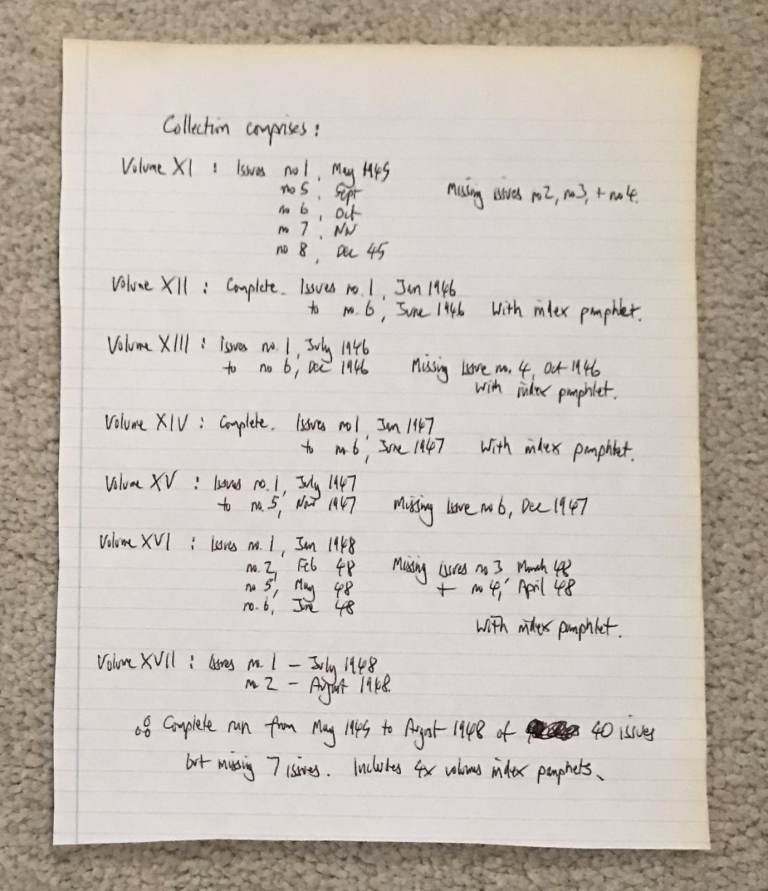 Collection comprises :
Volume XI : Issues no 1, May 1945
no 5, Sept Missing issues no 2, no 3, + no 4.
no 6, Oct
no 7, Nov
no 8, Dec 45
Volume XII : Complete. Issues no. 1, Jan 1946
to no. 6, June 1946 With index pamphlet.
Volume XIII : Issues no. 1, July 1946
to no 6, Dec 1946 Missing Issue no. 4, Oct 1946
With index pamphlet.
Volume XIV : Complete. Issues no 1, Jan 1947
to no 6, June 1947 With index pamphlet.
Volume XV : Issues no. 1, July 1947
to no. 5, Nov 1947 Missing Issue no 6, Dec 1947
Volume XVI : Issues no. 1, Jan 1948
no. 2, Feb 48 Missing issues no 3 March 48
no 5, May 48 + no 4, April 48
no. 6, June 48
With index pamphlet.
Volume XVII : Issues no. 1 – July 1948
no 2 – August 1948.
Complete run from May 1945 to August 1948 of 40 issues
but missing 7 issues. Includes 4x volumes index pamphlets.